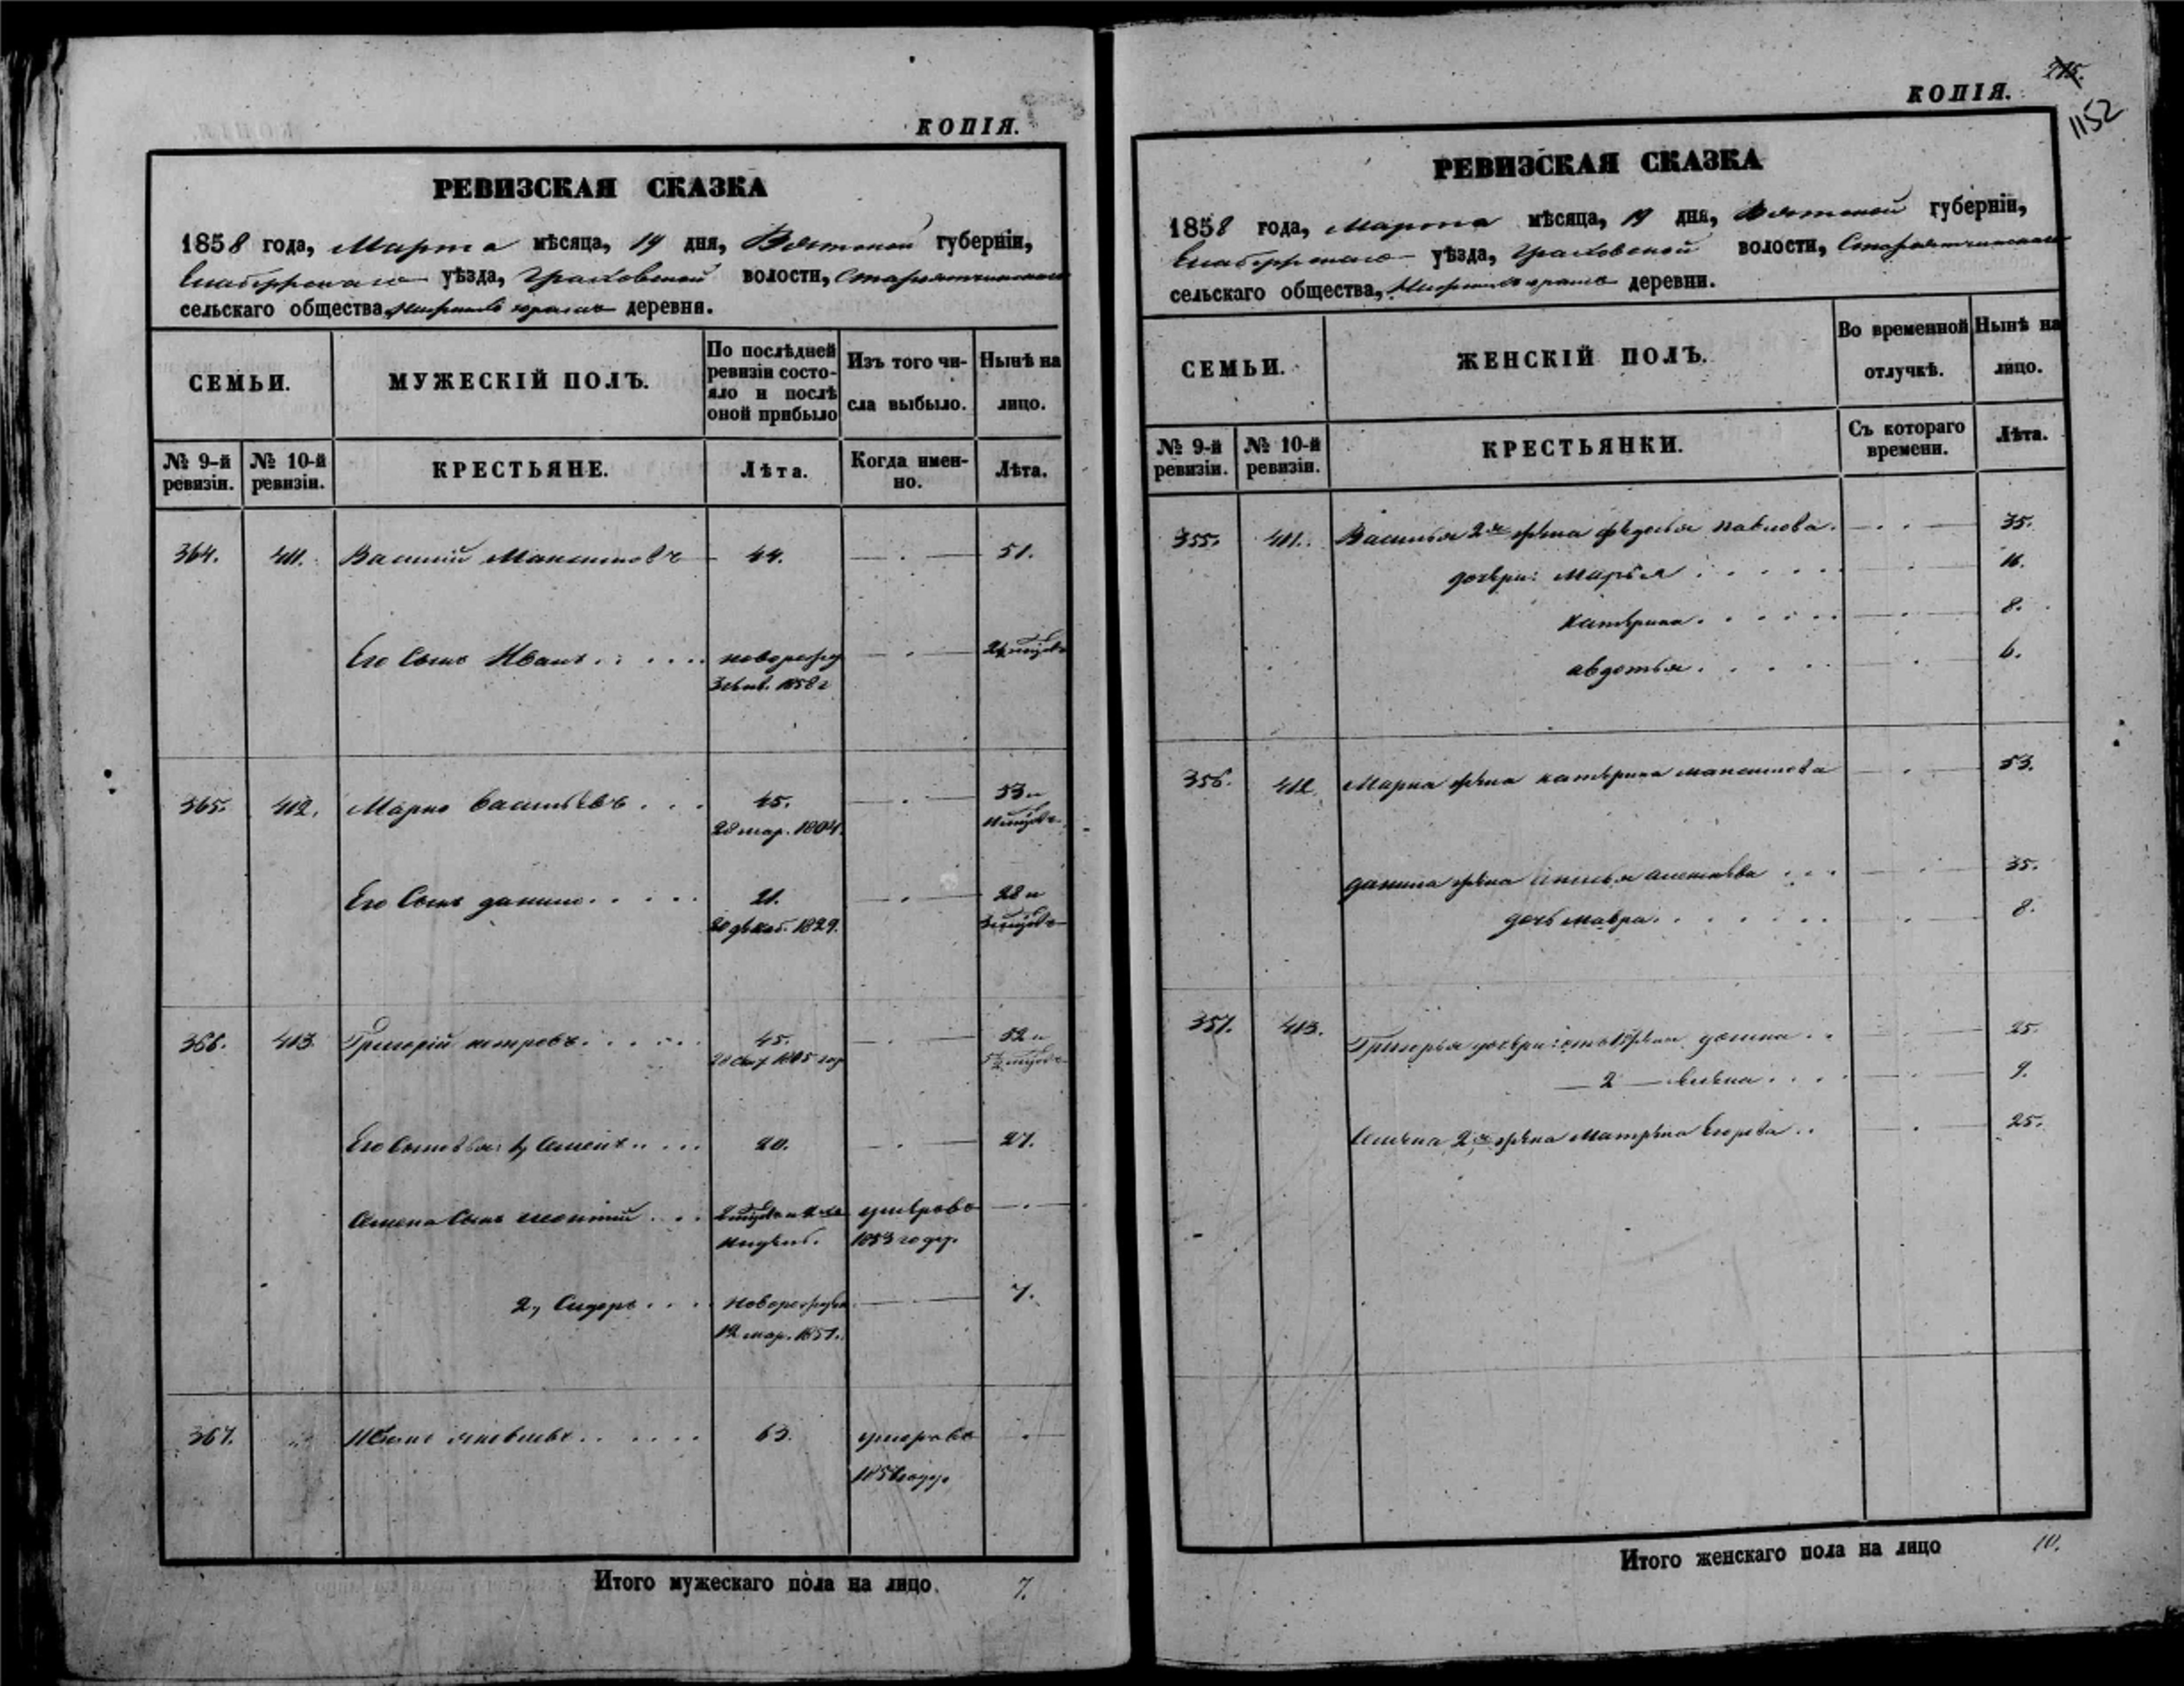 КОПІЯ.
РЕВИЗСКАЯ СКАЗКА
1858 года, Марта мѣсяца, 19 дня, Вятской губерніи,
Елабужскаго уѣзда, Граховской волости,
сельскаго общества деревни.
СЕМЬИ.
МУЖЕСКІЙ ПОЛЪ.
По послѣдней
ревизіи состо-
яло и послѣ
оной прибыло
Изъ того чи-
сла выбыло.
Нынѣ на
лицо.
№ 9-й
ревизіи.
№ 10-й
ревизіи.
КРЕСТЬЯНЕ.
Лѣта.
Когда имен-
но.
Лѣта.
364. 411. Василій Максимовъ 44. 51.
Его Сынъ Иванъ новорожд
1858 г
365. 412. Марко Васильевъ 45. 53 и
28 мар. 1804.
Его Сынъ Данило 21. 28 и
20 декаб. 1829. 3 мѣсяцовъ
366. 413. Григорій Петровъ 45. 52 и
1805 год
Его Сыновья: 1, Семенъ 20. 27.
Семена Сынъ умеръ въ
недѣль. 1853 году.
2, Сидоръ новорожден 7.
12 мар. 1851.
367. " Иванъ Яковлевъ 63. умеръ въ
году.
Итого мужескаго пола на лицо. 7.
КОПІЯ.
215.
1152
РЕВИЗСКАЯ СКАЗКА
1858 года, Марта мѣсяца, 19 дня, Вятской губерніи,
Елабужскаго уѣзда, Граховской волости,
сельскаго общества, деревни.
СЕМЬИ.
ЖЕНСКІЙ ПОЛЪ.
Во временной
отлучкѣ.
Нынѣ на
лицо.
№ 9-й
ревизіи.
№ 10-й
ревизіи.
КРЕСТЬЯНКИ.
Съ котораго
времени.
Лѣта.
355. 411. Василья 2я жена Федосья Павлова. 35.
дочери: Марья 16.
Катерина. 8.
Авдотья. 6.
356. 412. Марка жена Катерина Максимова 53.
Данила жена Алексѣева 35.
дочь Мавра. 8.
357. 413. Григорья дочери: отъ 1 жены Домна 25.
— 2 — Елена 9.
Семена 2я жена Матрена Егорова 25.
Итого женскаго пола на лицо 10.